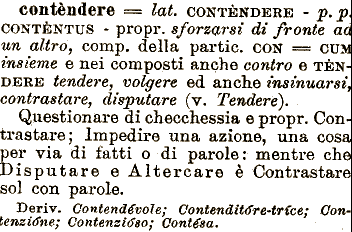 contèndere = lat. CONTÈNDERE - p. p.
CONTÈNTUS - propr. sforzarsi di fronte ad
un altro, comp. della partic. CON = CUM
insieme e nei composti anche contro e TÈN-
DERE tendere, volgere ed anche insinuarsi,
contrastare, disputare (v. Tendere).
Questionare di checchessia e propr. Con-
trastare; Impedire una azione, una cosa
per via di fatti o di parole: mentre che
Disputare e Altercare è Contrastare
sol con parole.
Deriv. Contendévole; Contenditóre-tríce; Con-
tenzióne; Contenzióso; Contésa.